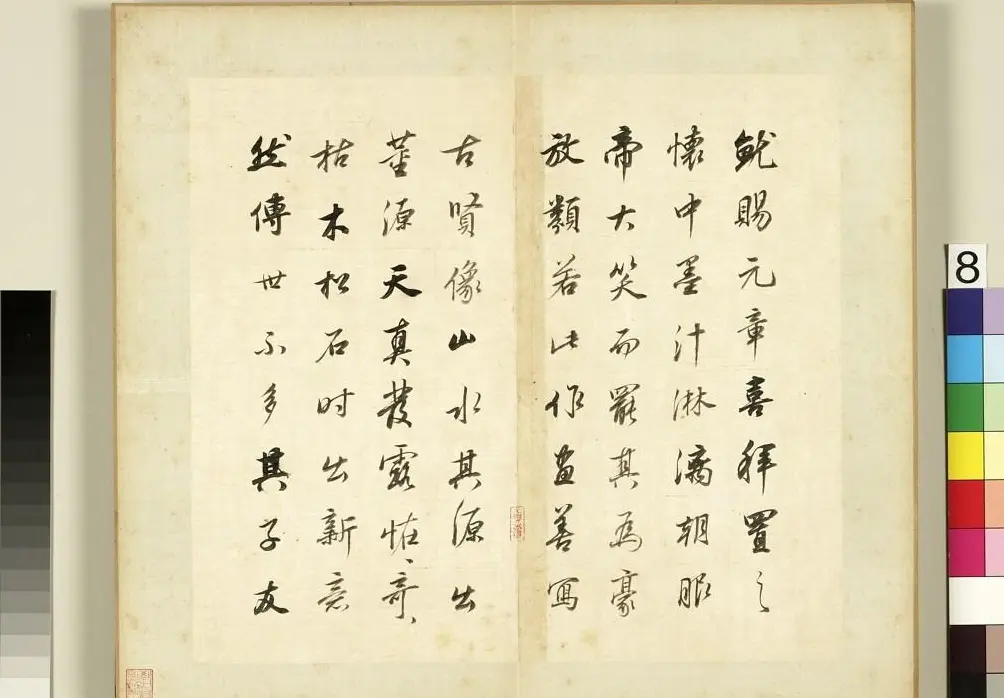 就賜元章喜拜置之
懷中墨汁淋漓朝服
帝大笑而罷其為豪
放類若此作畫善寫
古賢像山水其源出
董源天真發露怪、奇、
枯木松石时出新意
然傳世不多其子友
8